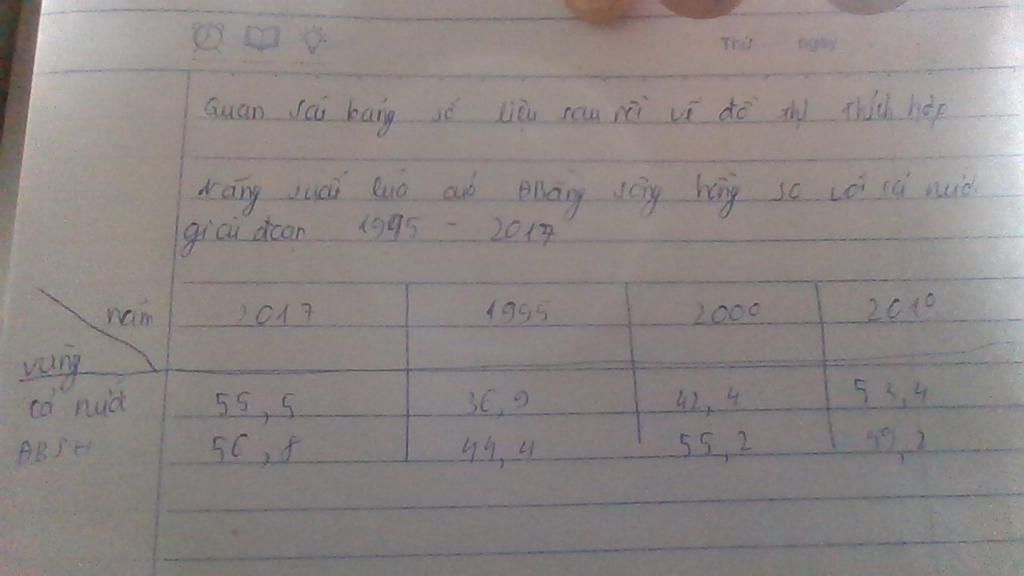 Thứ ngày
Quan sát bảng số liệu sau rồi vẽ đồ thị thích hợp
Năng suất lúa của ĐBằng sông hồng so với cả nước
giai đoạn 1995 - 2017
năm 2017 1995 2000 2010
vùng
cả nước 55,5 36,9 42,4 53,4
ĐBSH 56,8 44,4 55,2 59,2